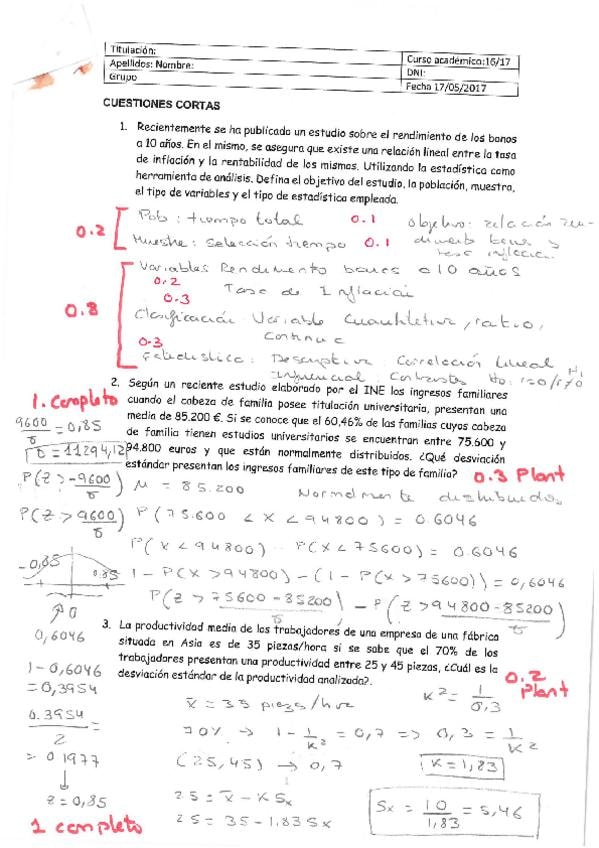 Titulación:
Apellidos: Nombre:
Grupo
Curso académico:16/17
DNI:
Fecha 17/05/2017
CUESTIONES CORTAS
1. Recientemente se ha publicado un estudio sobre el rendimiento de los bonos
a 10 años. En el mismo, se asegura que existe una relación lineal entre la tasa
de inflación y la rentabilidad de los mismos. Utilizando la estadística como
herramienta de análisis. Defina el objetivo del estudio, la población, muestra,
el tipo de variables y el tipo de estadística empleada.
0.2
Pob: tiempo total 0.1
Muestra: selección tiempo 0.1
objetivo: relación ren-
dimiento bonos y
tasa inflación.
0.8
Variables Rendimento bonos a 10 años
0.2
Tasa de Inflación
0.3
Clasificación Variable Cuantitativa, ratio,
continua
0.3
Estadística: Descriptiva: Correlación lineal
Inferencial: Contrastes Ho: r=0/r≠0
H1
2. Según un reciente estudio elaborado por el INE los ingresos familiares
cuando el cabeza de familia posee titulación universitaria, presentan una
media de 85.200 €. Si se conoce que el 60,46% de las familias cuyos cabeza
de familia tienen estudios universitarios se encuentran entre 75.600 y
94.800 euros y que están normalmente distribuidos. ¿Qué desviación
estándar presentan los ingresos familiares de este tipo de familia?
0.3 Plant
1. Completo
9600/σ = 0,85
σ = 11294,12
P(Z > -9600/σ)
P(Z > 9600/σ)
-0,85 0.85
0
0,6046
1-0,6046
= 0,3954
0.3954/2 =
= 0 1977
z = 0,85
μ = 85.200 Normalmente distribuidos
P(75.600 < X < 94800) = 0.6046
P(X < 94800) - P(X < 75600) = 0.6046
1 - P(X > 94800) - (1 - P(X > 75600)) = 0,6046
P(Z > 75600-85200/σ) - P(Z > 94800-85200/σ)
3. La productividad media de los trabajadores de una empresa de una fábrica
situada en Asia es de 35 piezas/hora si se sabe que el 70% de los
trabajadores presentan una productividad entre 25 y 45 piezas, ¿Cuál es la
desviación estándar de la productividad analizada?.
0.2
Plant
x̄ = 35 piezas/hora
K² = 1/0,3
70% → 1 - 1/K² = 0,7 => 0,3 = 1/K²
(25,45) → 0,7
K = 1,83
25 = x̄ - K Sx
25 = 35 - 1.83 Sx
Sx = 10/1,83 = 5,46
1 completo